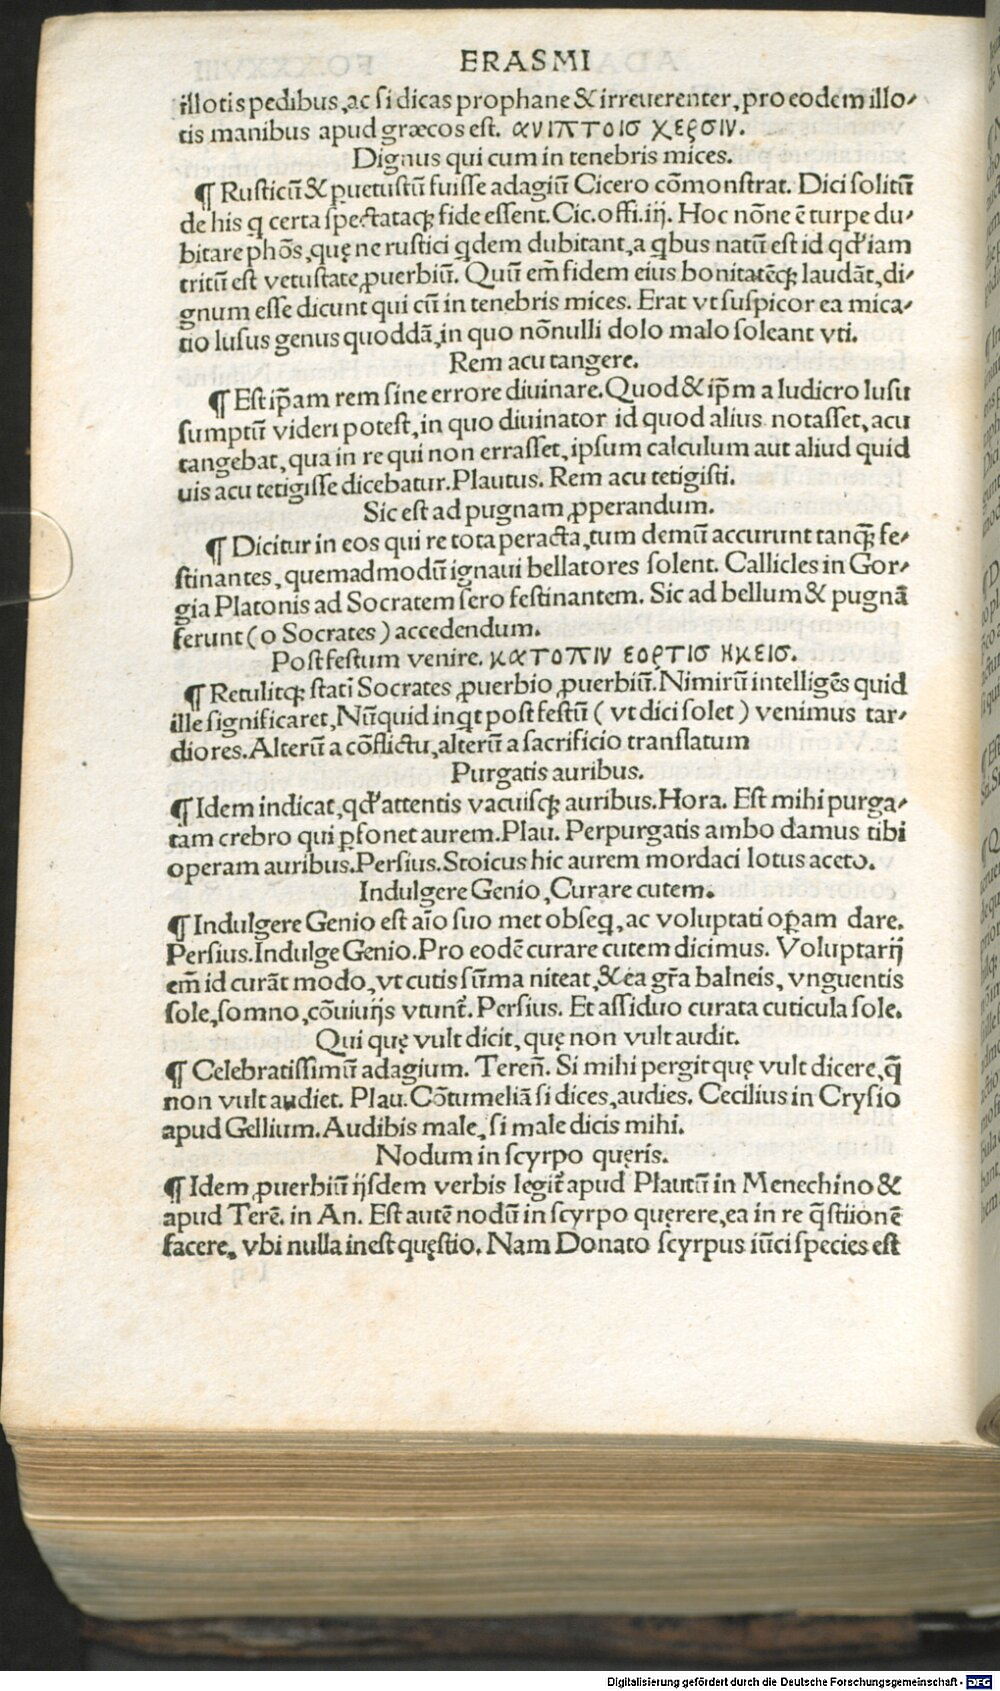 ERASMI
illotis pedibus, ac si dicas prophane & irreuerenter, pro eodem illo⸗
tis manibus apud græcos est. ανιπτοισ χερσιν.
Dignus qui cum in tenebris mices.
¶ Rusticũ & ꝓuetustũ fuisse adagiũ Cicero cõmonstrat. Dici solitũ
de his q certa spectataqꝫ fide essent. Cic. offi. iij. Hoc nõne ẽ turpe du⸗
bitare phõs, quę ne rustici qdem dubitant, a qbus natũ est id qđ iam
tritũ est vetustate ꝓuerbiũ. Quũ em̃ fidem eius bonitatẽqꝫ laudãt, di⸗
gnum esse dicunt qui cũ in tenebris mices. Erat vt suspicor ea mica⸗
tio lusus genus quoddã, in quo nõnulli dolo malo soleant vti.
Rem acu tangere.
¶ Est ip̃am rem sine errore diuinare. Quod & ip̃m a ludicro lusu
sumptũ videri potest, in quo diuinator id quod alius notasset, acu
tangebat, qua in re qui non errasset, ipsum calculum aut aliud quid
uis acu tetigisse dicebatur. Plautus. Rem acu tetigisti.
Sic est ad pugnam ꝓperandum.
¶ Dicitur in eos qui re tota peracta, tum demũ accurunt tanqꝫ̃ fe⸗
stinantes, quemadmodũ ignaui bellatores solent. Callicles in Gor⸗
gia Platonis ad Socratem sero festinantem. Sic ad bellum & pugnã
ferunt (o Socrates) accedendum.
Post festum venire. κατοπιν εορτισ ηκεισ.
¶ Retulitqꝫ stati Socrates ꝓuerbio ꝓuerbiũ. Nimirũ intelligẽs quid
ille significaret, Nũquid inqt post festũ (vt dici solet) venimus tar⸗
diores. Alterũ a cõflictu, alterũ a sacrificio translatum
Purgatis auribus.
¶ Idem indicat, qđ attentis vacuisqꝫ auribus. Hora. Est mihi purga⸗
tam crebro qui ꝑsonet aurem. Plau. Perpurgatis ambo damus tibi
operam auribus. Persius. Stoicus hic aurem mordaci lotus aceto.
Indulgere Genio, Curare cutem.
¶ Indulgere Genio est aĩo suo met obseq, ac voluptati oꝑam dare.
Persius. Indulge Genio. Pro eodẽ curare cutem dicimus. Voluptarij
em̃ id curãt modo, vt cutis sũma niteat, & ea gr̃a balneis, vnguentis
sole, somno, cõuiuijs vtunt̃. Persius. Et assiduo curata cuticula sole.
Qui quę vult dicit, quę non vult audit.
¶ Celebratissimũ adagium. Tereñ. Si mihi pergit quę vult dicere, q̃
non vult audiet. Plau. Cõtumeliã si dices, audies. Cecilius in Crysio
apud Gellium. Audibis male, si male dicis mihi.
Nodum in scyrpo quęris.
¶ Idem ꝓuerbiũ ijsdem verbis legit̃ apud Plautũ in Menechino &
apud Terẽ. in An. Est autẽ nodũ in scyrpo quęrere, ea in re q̃stiionẽ
facere, vbi nulla inest quęstio. Nam Donato scyrpus iũci species est
Digitalisierung gefördert durch die Deutsche Forschungsgemeinschaft - DFG